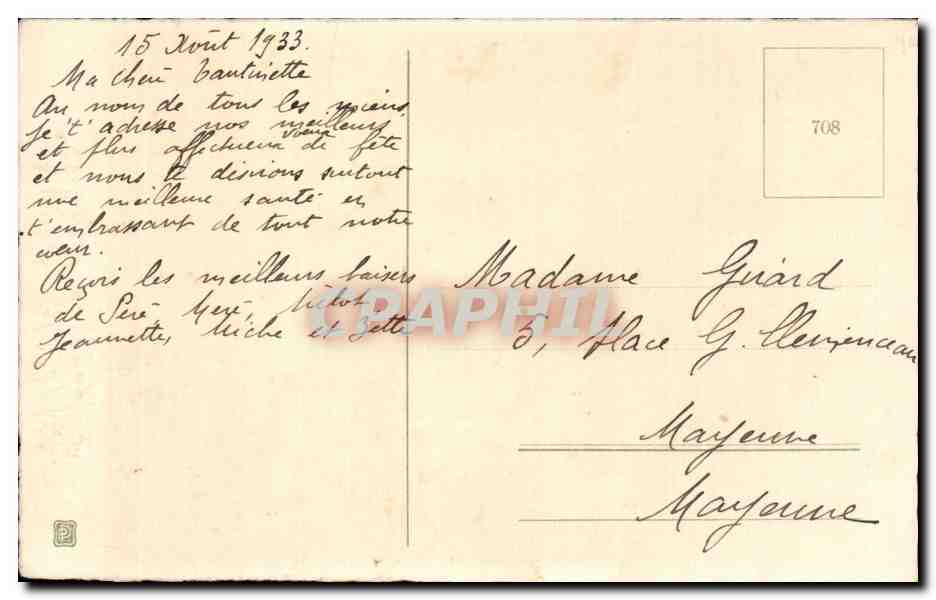 15 Août 1933.
Ma chère Tantinette
Au nom de tous les miens,
je t'adresse nos meilleurs
et plus affectueux voeux de fête
et nous te désirons surtout
une meilleure santé en
t'embrassant de tout notre
coeur.
Reçois les meilleurs baisers
de Père, Mère,
Jeannette, Miche et Zette
708
Madame Girard
5, Place G. Clemenceau
Mayenne
Mayenne
CPAPHIL